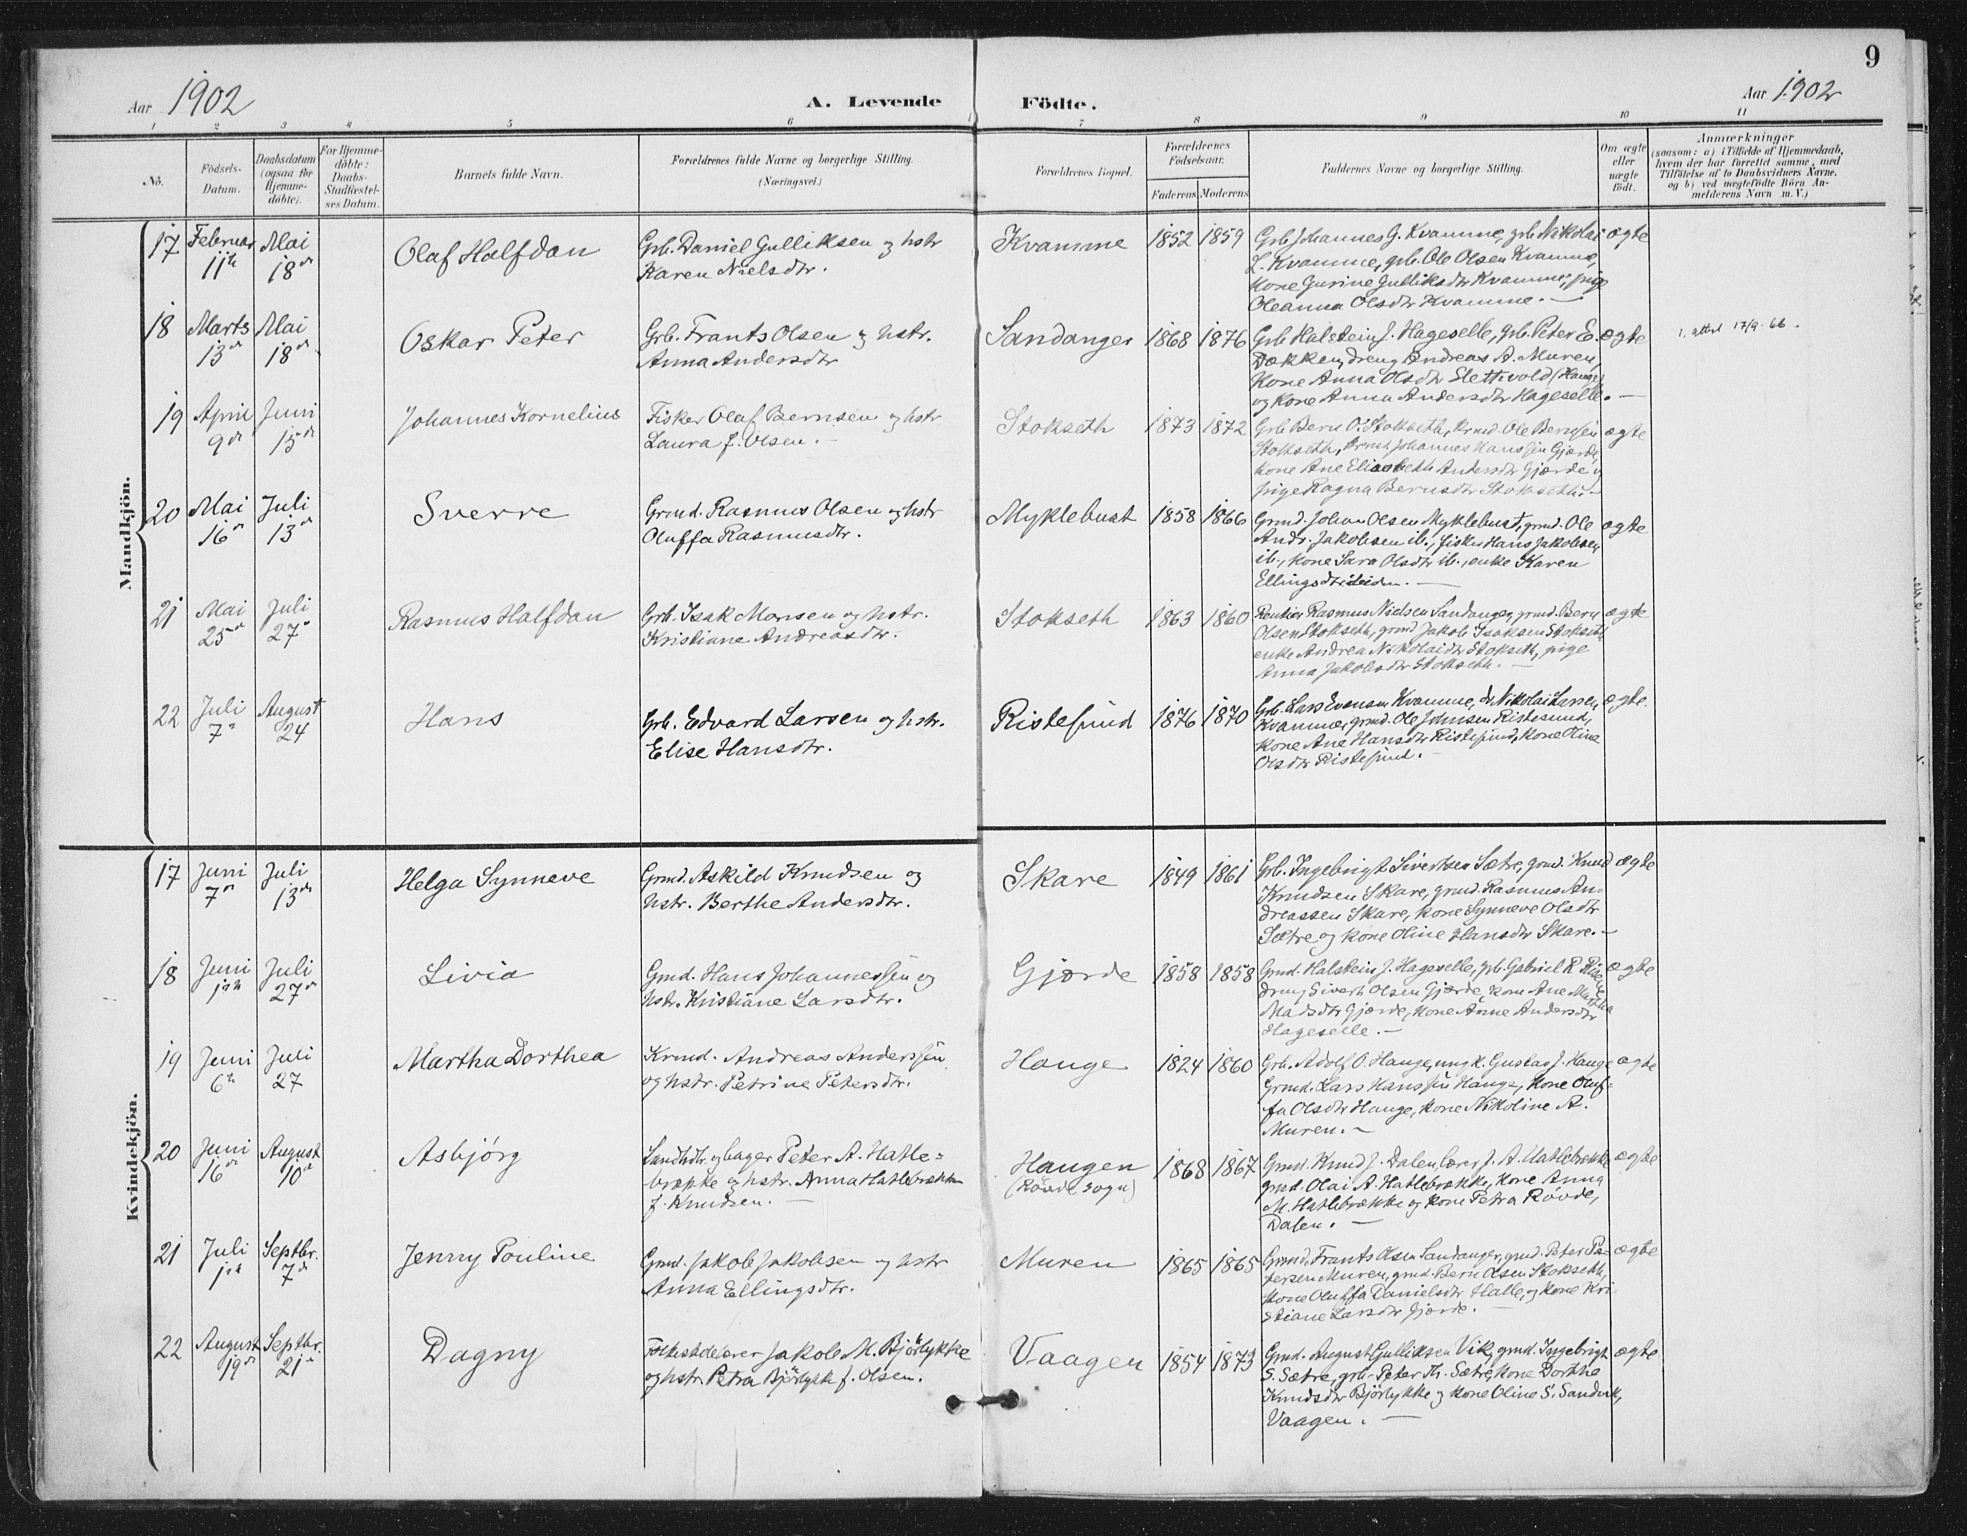 9
Aar 1902
A. Levende Födte.
Aar 1902
1 2 3 4 5 6 7 8 9 10 11
No.
Födsels-Datum.
Daabsdatum (ogsaa for Hjemmedöbte).
For Hjemmedöbte: Daabs-Stadfæstelses Datum.
Barnets fulde Navn.
Forældrenes fulde Navne og borgerlige Stilling. (Næringsvei.)
Forældrenes Bopæl.
Forældrenes Födselsaar.
Faderens Moderens
Faddernes Navne og borgerlige Stilling.
Om ægte eller uægte födt.
Anmærkninger
(saasom: a) i Tilfælde af Hjemmedaab,
hvem der har forrettet samme, med
Tilföielse af to Daabsvidners Navne.
og b) ved uægtefödte Börn An-
melderens Navn m. V.)
Mandkjön.
17 Februar 11te Mai 18de Olaf Halfdan
Grb. Daniel Gulliksen og hstr
Karen Nielsdtr.
Kvamme 1852 1859
Grb Johannes G. Kvamme, grb Nikolai
L. Kvamme, grb. Ole Olsen Kvamme,
kone Gurine Gulliksdtr Kvamme, pige
Oleanna Olsdtr Kvamme. —
ægte
18 Marts 13de Mai 18de Oskar Peter
Grb. Frants Olsen og hstr.
Anna Andersdtr
Sandanger 1868 1876
Grb Halstein J. Hageselle, grb. Peter E.
Dekken, dreng Andreas A. Muren,
kone Anna Olsdtr Slettvold (Hauge)
og kone Anna Andersdtr Hageselle. —
ægte
1. attest 17/9-66.
19 April 9de Juni 15de Johannes Kornelius
Fisker Olaf Bernsen og hstr
Laura f. Olsen. —
Stokseth 1873 1872
Grb Bern O. Stokseth, krmd. Ole Bernsen
Stokseth, Johannes Hanssen Gjærde,
kone Ane Elisabeth Andersdtr Gjærde og
pige Ragna Bernsdtr Stokseth. —
ægte
20 Mai 16de Juli 13de Sverre
Grmd. Rasmus Olsen og hstr
Oluffa Rasmusdtr.
Myklebust 1858 1866
Grmd. Johan Olsen Myklebust, grmd. Ole
Andr. Jakobsen ib., fisker Hans Jakobsen
ib., kone Sara Olsdtr ib., enke Karen
Ellingsdtr
ægte
21 Mai 25de Juli 27de Rasmus Halfdan
Grb. Isak Monsen og hstr.
Kristiane Andreasdtr.
Stokseth 1863 1860
Rentier Rasmus Nielsen Sandanger, grmd. Bern
Olsen Stokseth, grmd Jakob Isaksen Stokseth
enke Andrea Nikolaidtr Stokseth, pige
Anna Jakobsdtr Stokseth. —
ægte
22 Juli 7de August 24 Hans
Grb. Edvard Larsen og hstr.
Elise Hansdtr.
Ristesund 1876 1870
Grb. Lars Evensen Kvamme, do Nikolai Larsen
Kvamme, grmd. Ole Johnsen Ristesund,
kone Ane Hansdtr Ristesund, kone Oline
Olsdtr Ristesund. —
ægte
Kvindekjön.
17 Juni 7de Juli 13de Helga Synneve
Grmd. Askild Knudsen og
hstr. Berthe Andersdtr.
Skare 1849 1861
Grb. Ingebrigt Sivertsen Sætre, grmd. Knud
Knudsen Skare, grmd. Rasmus An-
dreassen Skare, kone Synneve Olsdtr
Sætre og kone Oline Hansdtr Skare. —
ægte
18 Juni 1ste Juli 27de Livia
Grmd. Hans Johannessen og
hstr. Kristiane Larsdtr.
Gjærde 1858 1858
Grmd. Halstein J. Hageselle, grb. Gabriel R. Rise
dreng Sivert Olsen Gjærde, kone Ane Martha
Madsdtr Gjærde, kone Anne Andersdtr
Hageselle. —
ægte
19 Juni 6te Juli 27 Martha Dorthea
Krmd. Andreas Anderssen
og hstr. Petrine Petersdtr.
Hauge 1824 1860
Grb. Adolf O. Hauge, ungk. Gustav J. Hauge
Grmd. Lars Hanssen Hauge, kone Oluf-
fa Olsdtr Hauge, kone Nikoline A.
Muren. —
ægte
20 Juni 16de August 10de Asbjørg
Landhdlr. og bager Peter A. Hatle-
brække og hstr. Anna Hatlebrække
f. Knudsen. —
Haugen
(Røvde sogn)
1868 1867
Grmd. Knud J. Dalen, lærer J. A. Hatlebrække
grmd. Olai A. Hatlebrække, kone Anna
M. Hatlebrække og kone Petra Røvde,
Dalen. —
ægte
21 Juli 1ste Septbr. 7de Jenny Pouline
Grmd. Jakob Jakobsen og hstr
Anna Ellingsdtr.
Muren 1865 1865
Grmd. Frants Olsen Sandanger, grmd. Peter Pe-
tersen Muren, grmd. Bern Olsen Stokseth,
kone Oluffa Danielsdtr Halle, og kone Kri
stiane Larsdtr Gjærde. —
ægte
22 August 19de Septbr. 21de Dagny
Jakob M. Bjørlykke
og hstr. Petra Bjørlykke f. Olsen.
Vaagen 1854 1873
Grmd. August Gulliksen Vik, grmd. Ingebrigt
S. Sætre, grb. Peter Kr. Sætre, kone Dorthe
Knudsdtr Bjørlykke og kone Oline S. Sandvik,
Vaagen. —
ægte